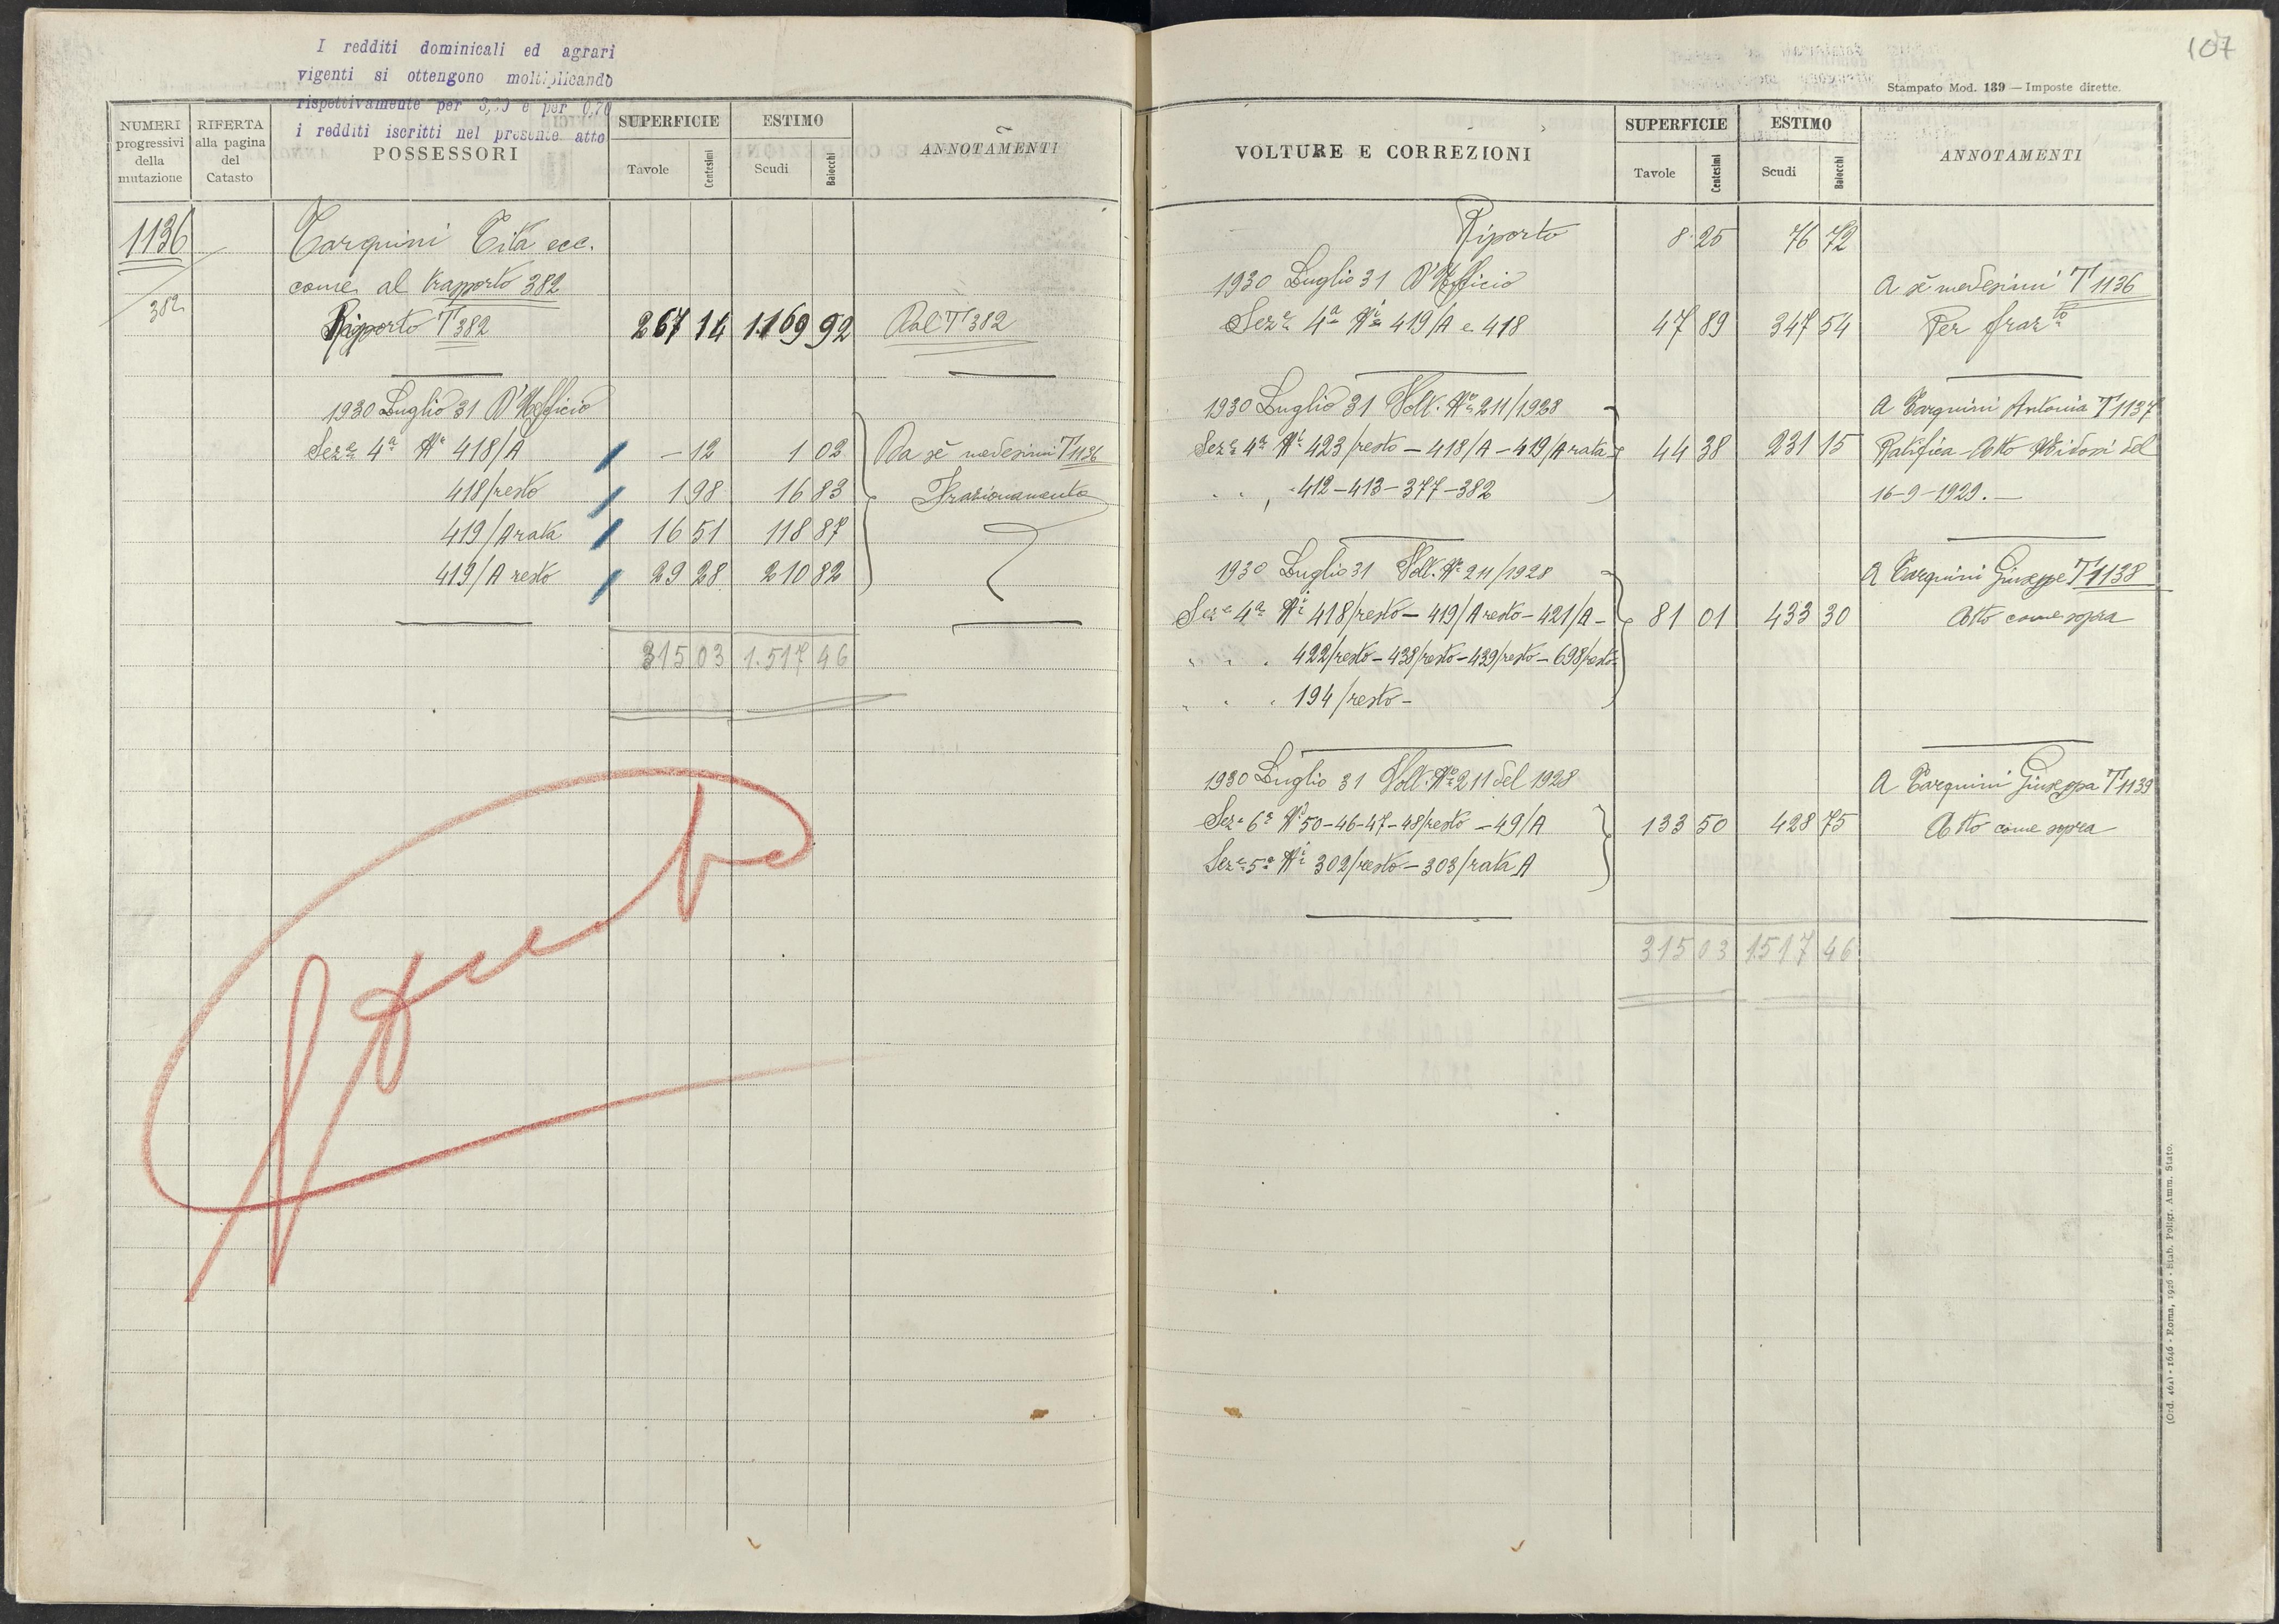 I redditi dominicali ed agrari
vigenti si ottengono moltiplicando
rispettivamente per 3,20 e per 0,70
i redditi iscritti nel presente atto
NUMERI progressivi della mutazione
RIFERTA alla pagina del Catasto
POSSESSORI
SUPERFICIE
Tavole Centesimi
ESTIMO
Scudi Baiocchi
ANNOTAMENTI
1136 Tarquini Tita ecc.
come al trapporto 382
382 Riporto T 382 267 14 1.169 92 Dal T 382
1930 Luglio 31 D'Ufficio
Sez.e 4a N.i 418/A – 12 1 02 Da sè medesimi T 1136
418/resto 1 98 16 83 Frazionamento
419/A rata 16 51 118 87
419/A resto 29 28 210 82
315 03 1.517 46
107
Stampato Mod. 139 — Imposte dirette.
VOLTURE E CORREZIONI
SUPERFICIE
Tavole Centesimi
ESTIMO
Scudi Baiocchi
ANNOTAMENTI
Riporto 8 25 76 72
1930 Luglio 31 D'Ufficio A sè medesimi T 1136
Sez.e 4a N.i 419/A e 418 47 89 347 54 Per fraz.to
1930 Luglio 31 Volt. N.o 211/1928 A Tarquini Antonia T 1137
Sez.e 4a N.i 423/resto – 418/A – 419/A rata 44 38 231 15 Ratifica Atto del
" " " 412 – 413 – 377 – 382 16-9-1929. —
1930 Luglio 31 Volt. N.o 211/1928 A Tarquini Giuseppe T 1138
Sez.e 4a N.i 418/resto – 419/A resto – 421/A – 81 01 433 30 Atto come sopra
" " " 422/resto – 438/resto – 439/resto – 698/resto –
" " " 194/resto –
1930 Luglio 31 Volt. N.o 211 del 1928 A Tarquini Giuseppa T 1139
Sez.e 6a N.i 50 – 46 – 47 – 48/resto – 49/A 133 50 428 75 Atto come sopra
Sez.e 5a N.i 302/resto – 303/rata A
315 03 1517 46
(Ord. 461) - 1646 - Roma, 1926 - Stab. Poligr. Amm. Stato.